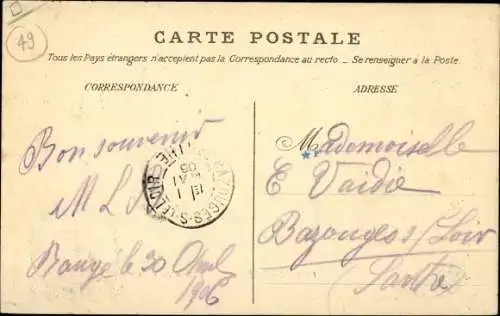 49
CARTE POSTALE
Tous les Pays étrangers n'acceptent pas la Correspondance au recto _ Se renseigner à la Poste.
CORRESPONDANCE
ADRESSE
Bon souvenir
M L
Baugé le 30 Avril
1906
BAZOUGES-S-LE LOIR
Mademoiselle
E Vaidie
Bazouges s/ Loir
Sarthe